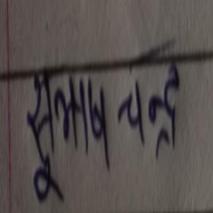 सुभाष चन्द्र